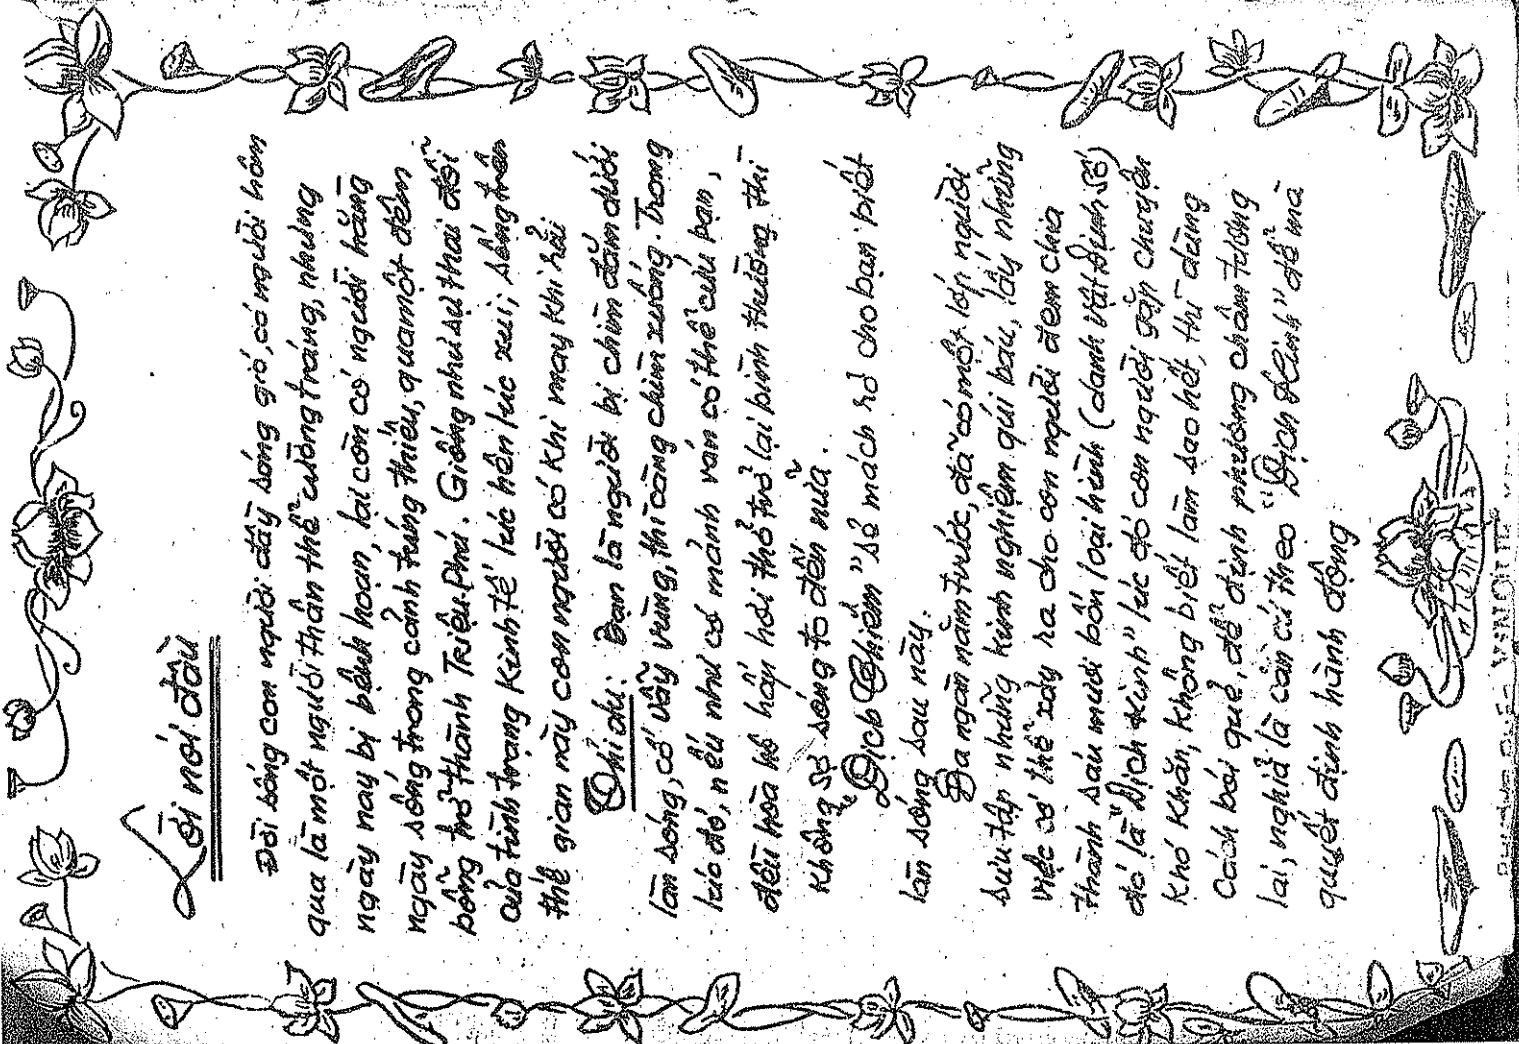 Lời nói đầu
Đời sống con người đầy sóng gió, có người hôm
qua là một người thân thể cường tráng, nhưng
ngày nay bị bệnh hoạn, lại còn có người hằng
ngày sống trong cảnh túng thiếu, qua một đêm
bỗng trở thành Triệu-Phú. Giống như sự thai đổi
của tình trạng Kinh tế lúc hên lúc xui; sống trên
thế gian nầy con người có khi may khi rủi
Thí dụ: Bạn là người bị chìm đắm dưới
làn sóng, cố vẫy vùng, thì càng chìm xuống. Trong
lúc đó, nếu như có mảnh ván có thể cứu bạn,
đều hòa hô hấp hơi thở trở lại bình thường thì
không sợ sóng to đến nữa.
"Dịch Chiêm" sẻ mách rỏ cho bạn biết
làn sóng sau nầy.
Ba ngàn năm trước, đã có một lớp người
sưu tập những kinh nghiệm quí báu, lấy những
việc có thể xảy ra cho con người đem chia
thành sáu mươi bốn loại hình (danh vật định số)
đó là "Dịch Kinh" lúc đó con người gặp chuyện
khó khăn, không biết làm sao hết, thì dùng
Cách bói quẻ, để định phương châm tương
lai, nghỉa là căn cứ theo "Dịch Kinh" để mà
quyết định hành động